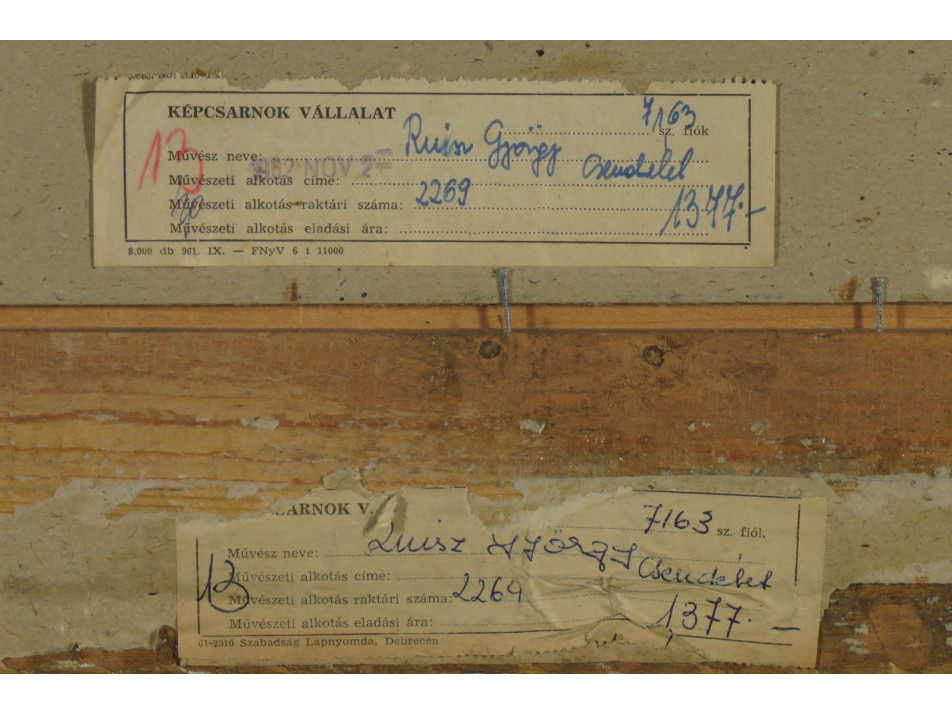 KÉPCSARNOK VÁLLALAT
7163 sz. fiók
13
Művész neve: Ruisz György
1962 NOV 2
Művészeti alkotás címe: Csendélet
Művészeti alkotás raktári száma: 2269
Művészeti alkotás eladási ára: 1377.—
8.000 db 961. IX. — FNyV 6 t 11000
CSARNOK V.
7163 sz. fiók
Művész neve: Ruisz György
13
Művészeti alkotás címe: Csendélet
Művészeti alkotás raktári száma: 2269
Művészeti alkotás eladási ára: 1377.—
61-2310 Szabadság Lapnyomda, Debrecen